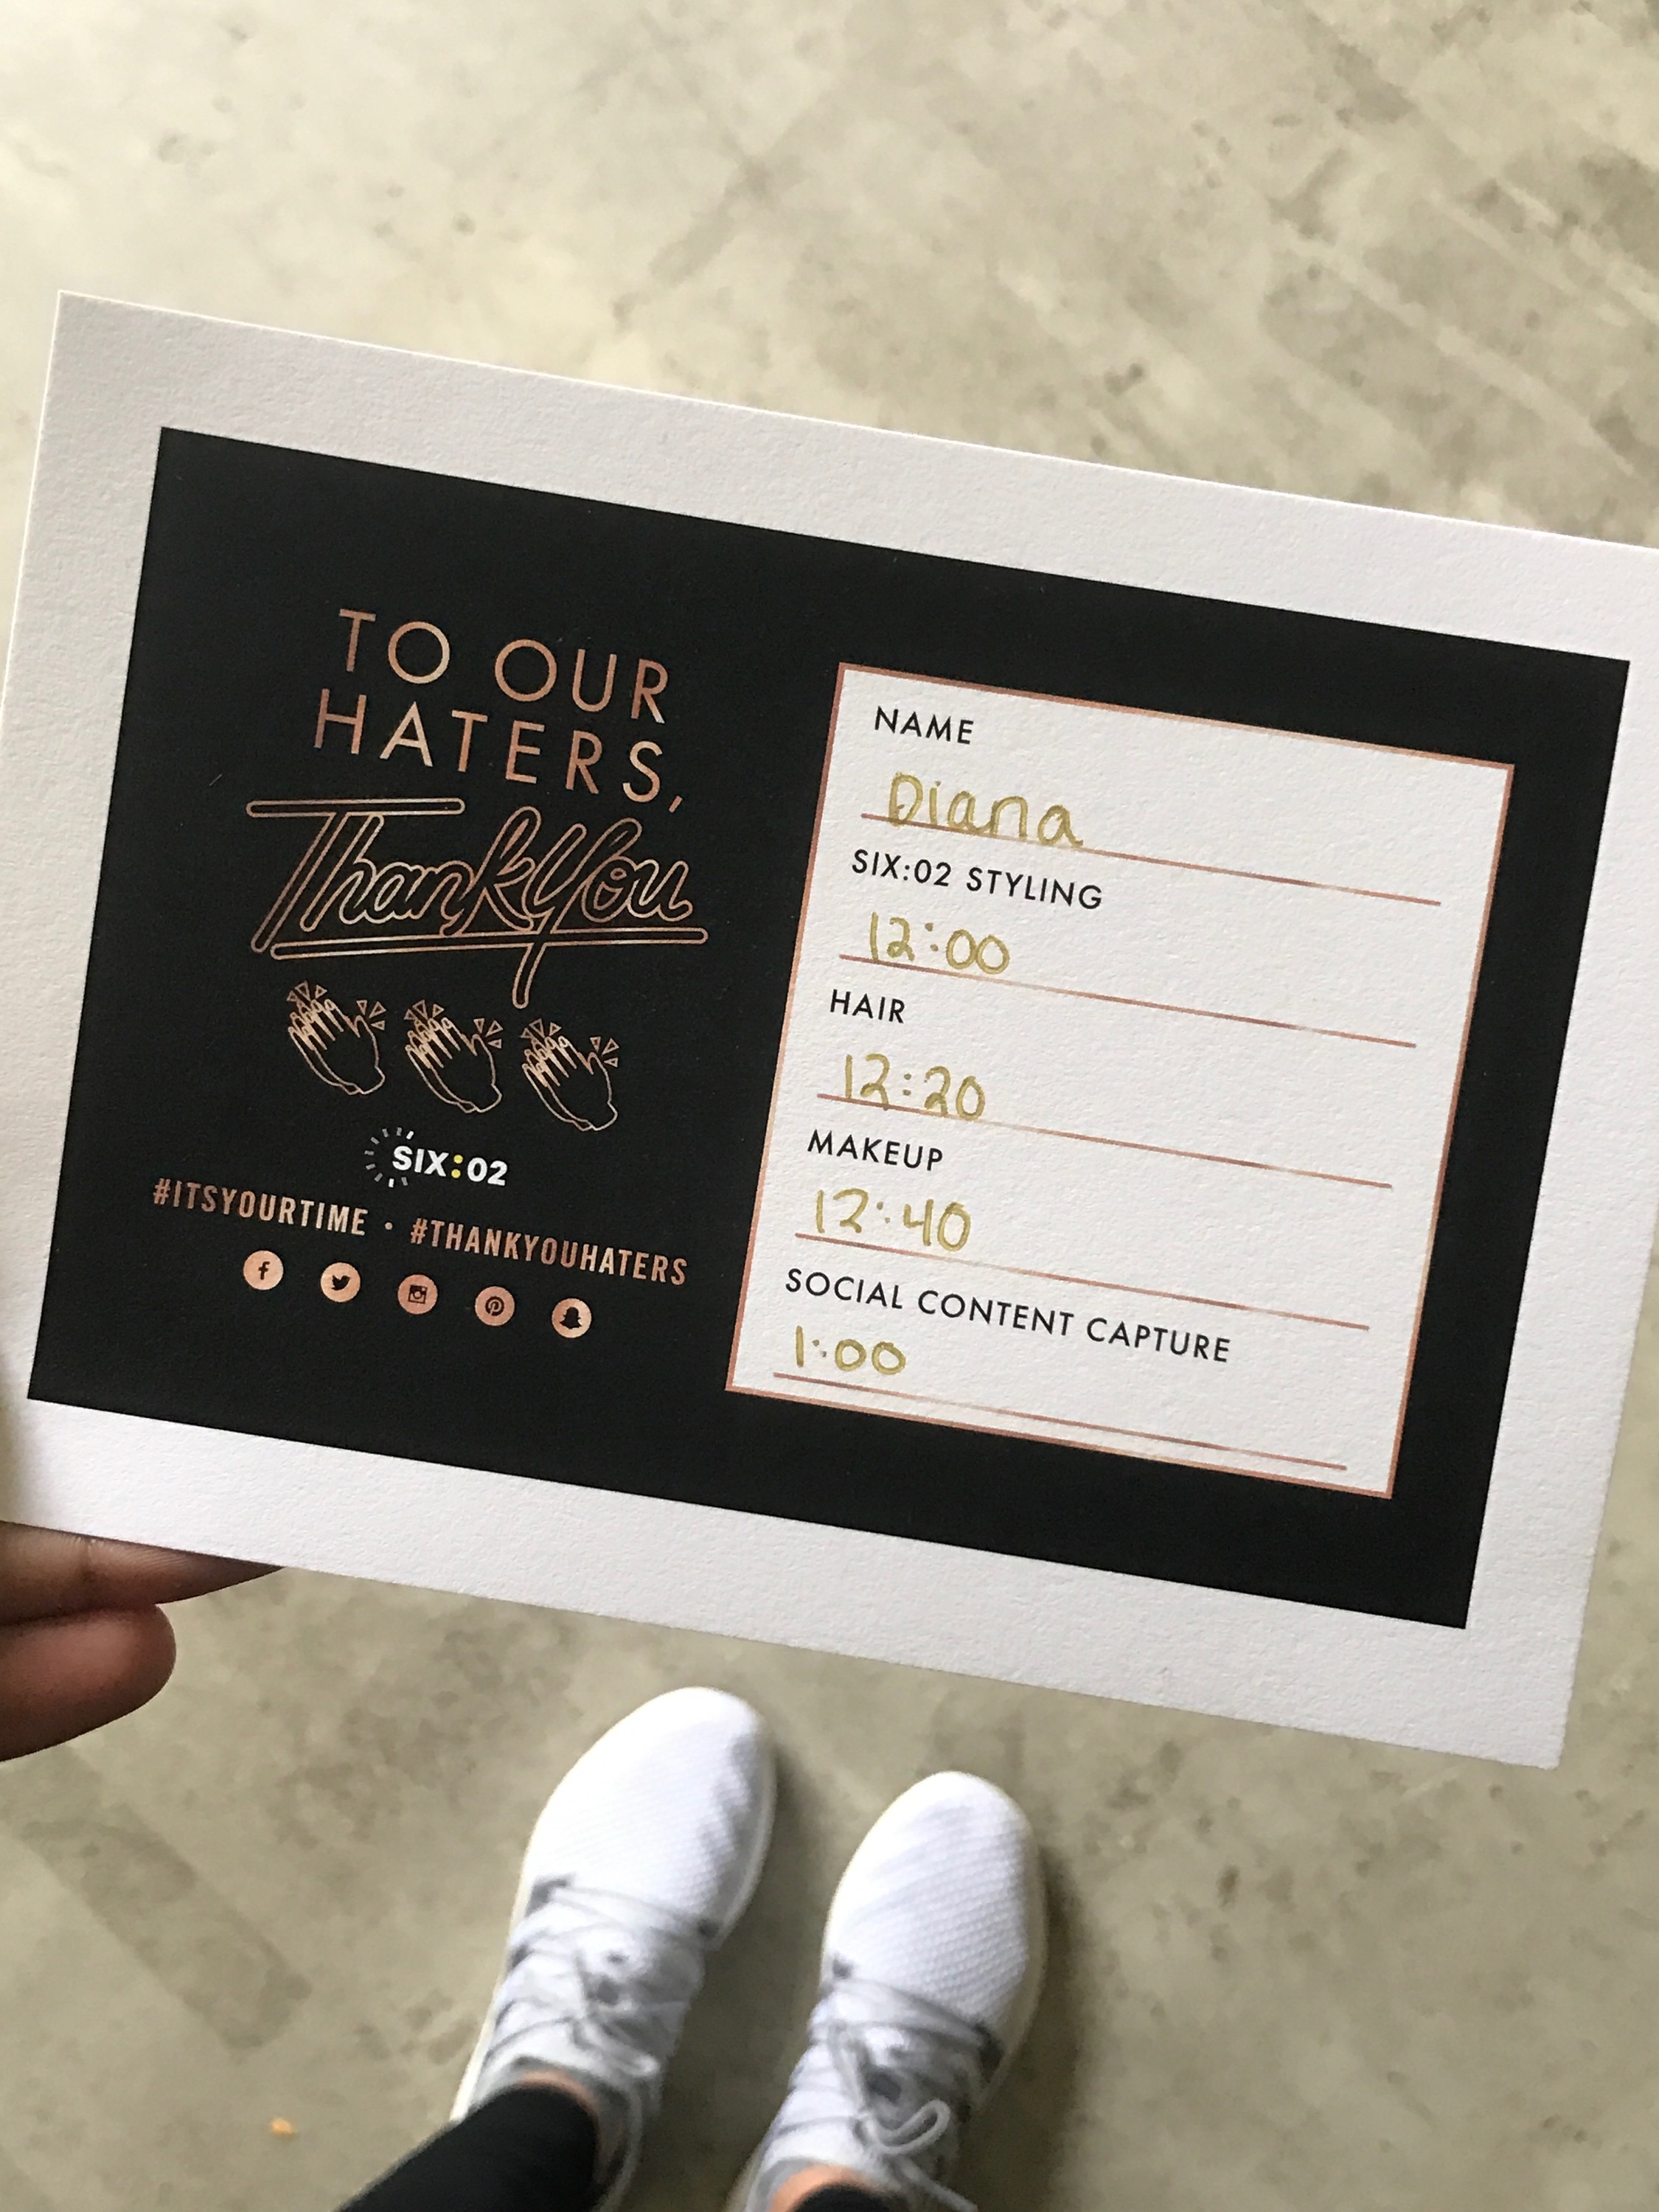 TO OUR
HATERS,
Thank You
SIX:02
#ITSYOURTIME • #THANKYOUHATERS
NAME
Diana
SIX:02 STYLING
12:00
HAIR
12:20
MAKEUP
12:40
SOCIAL CONTENT CAPTURE
1:00